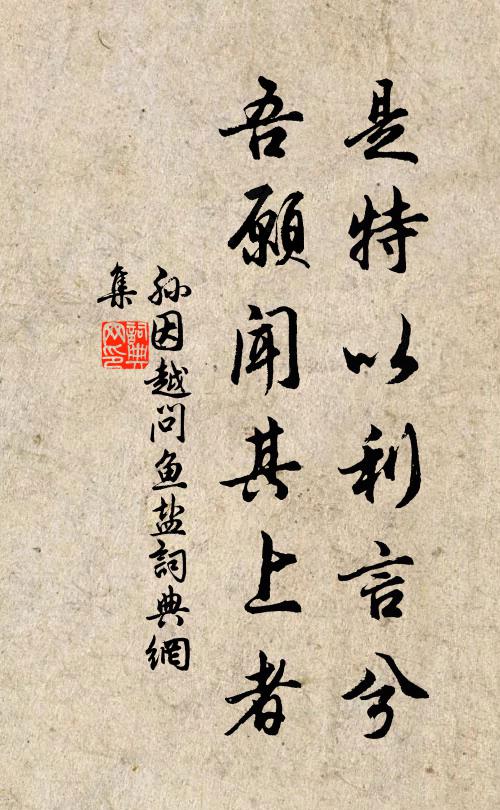 是特以利言兮
吾願聞其上者
孙因越问鱼盐詞典網
集
詞典
网印